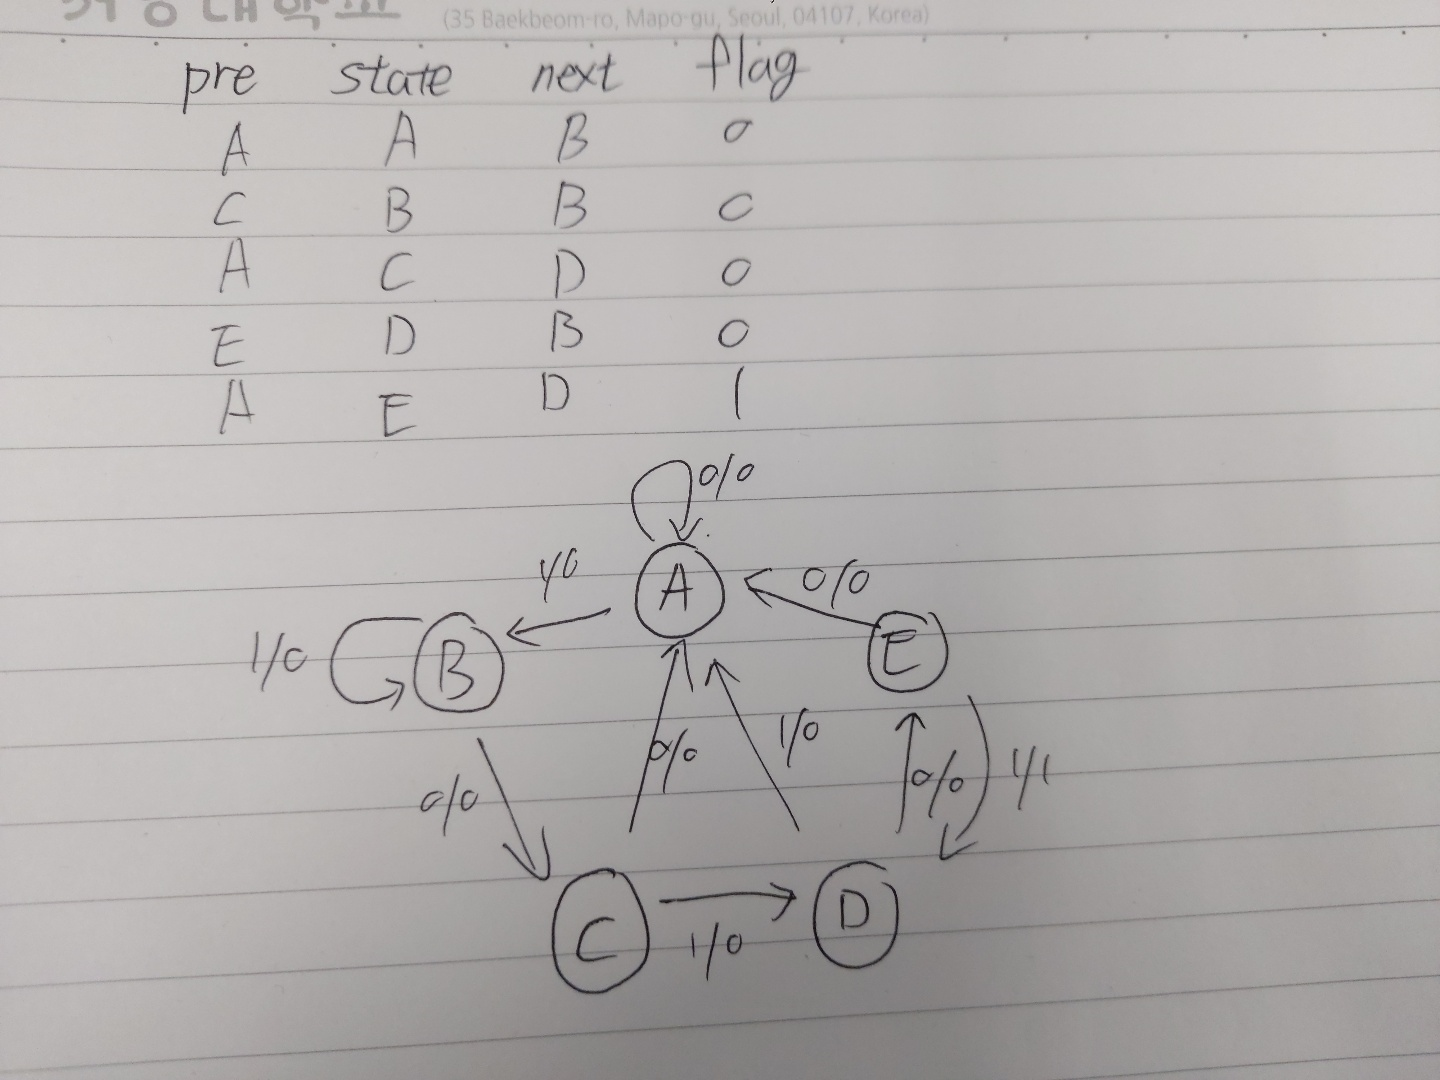 (35 Baekbeom-ro, Mapo-gu, Seoul, 04107, Korea)
pre state next flag
A A B 0
C B B 0
A C D 0
E D B 0
A E D 1
0/0
1/0 A 0/0
1/0 B E
0/0 0/0 1/0 0/0 1/1
C 1/0 D